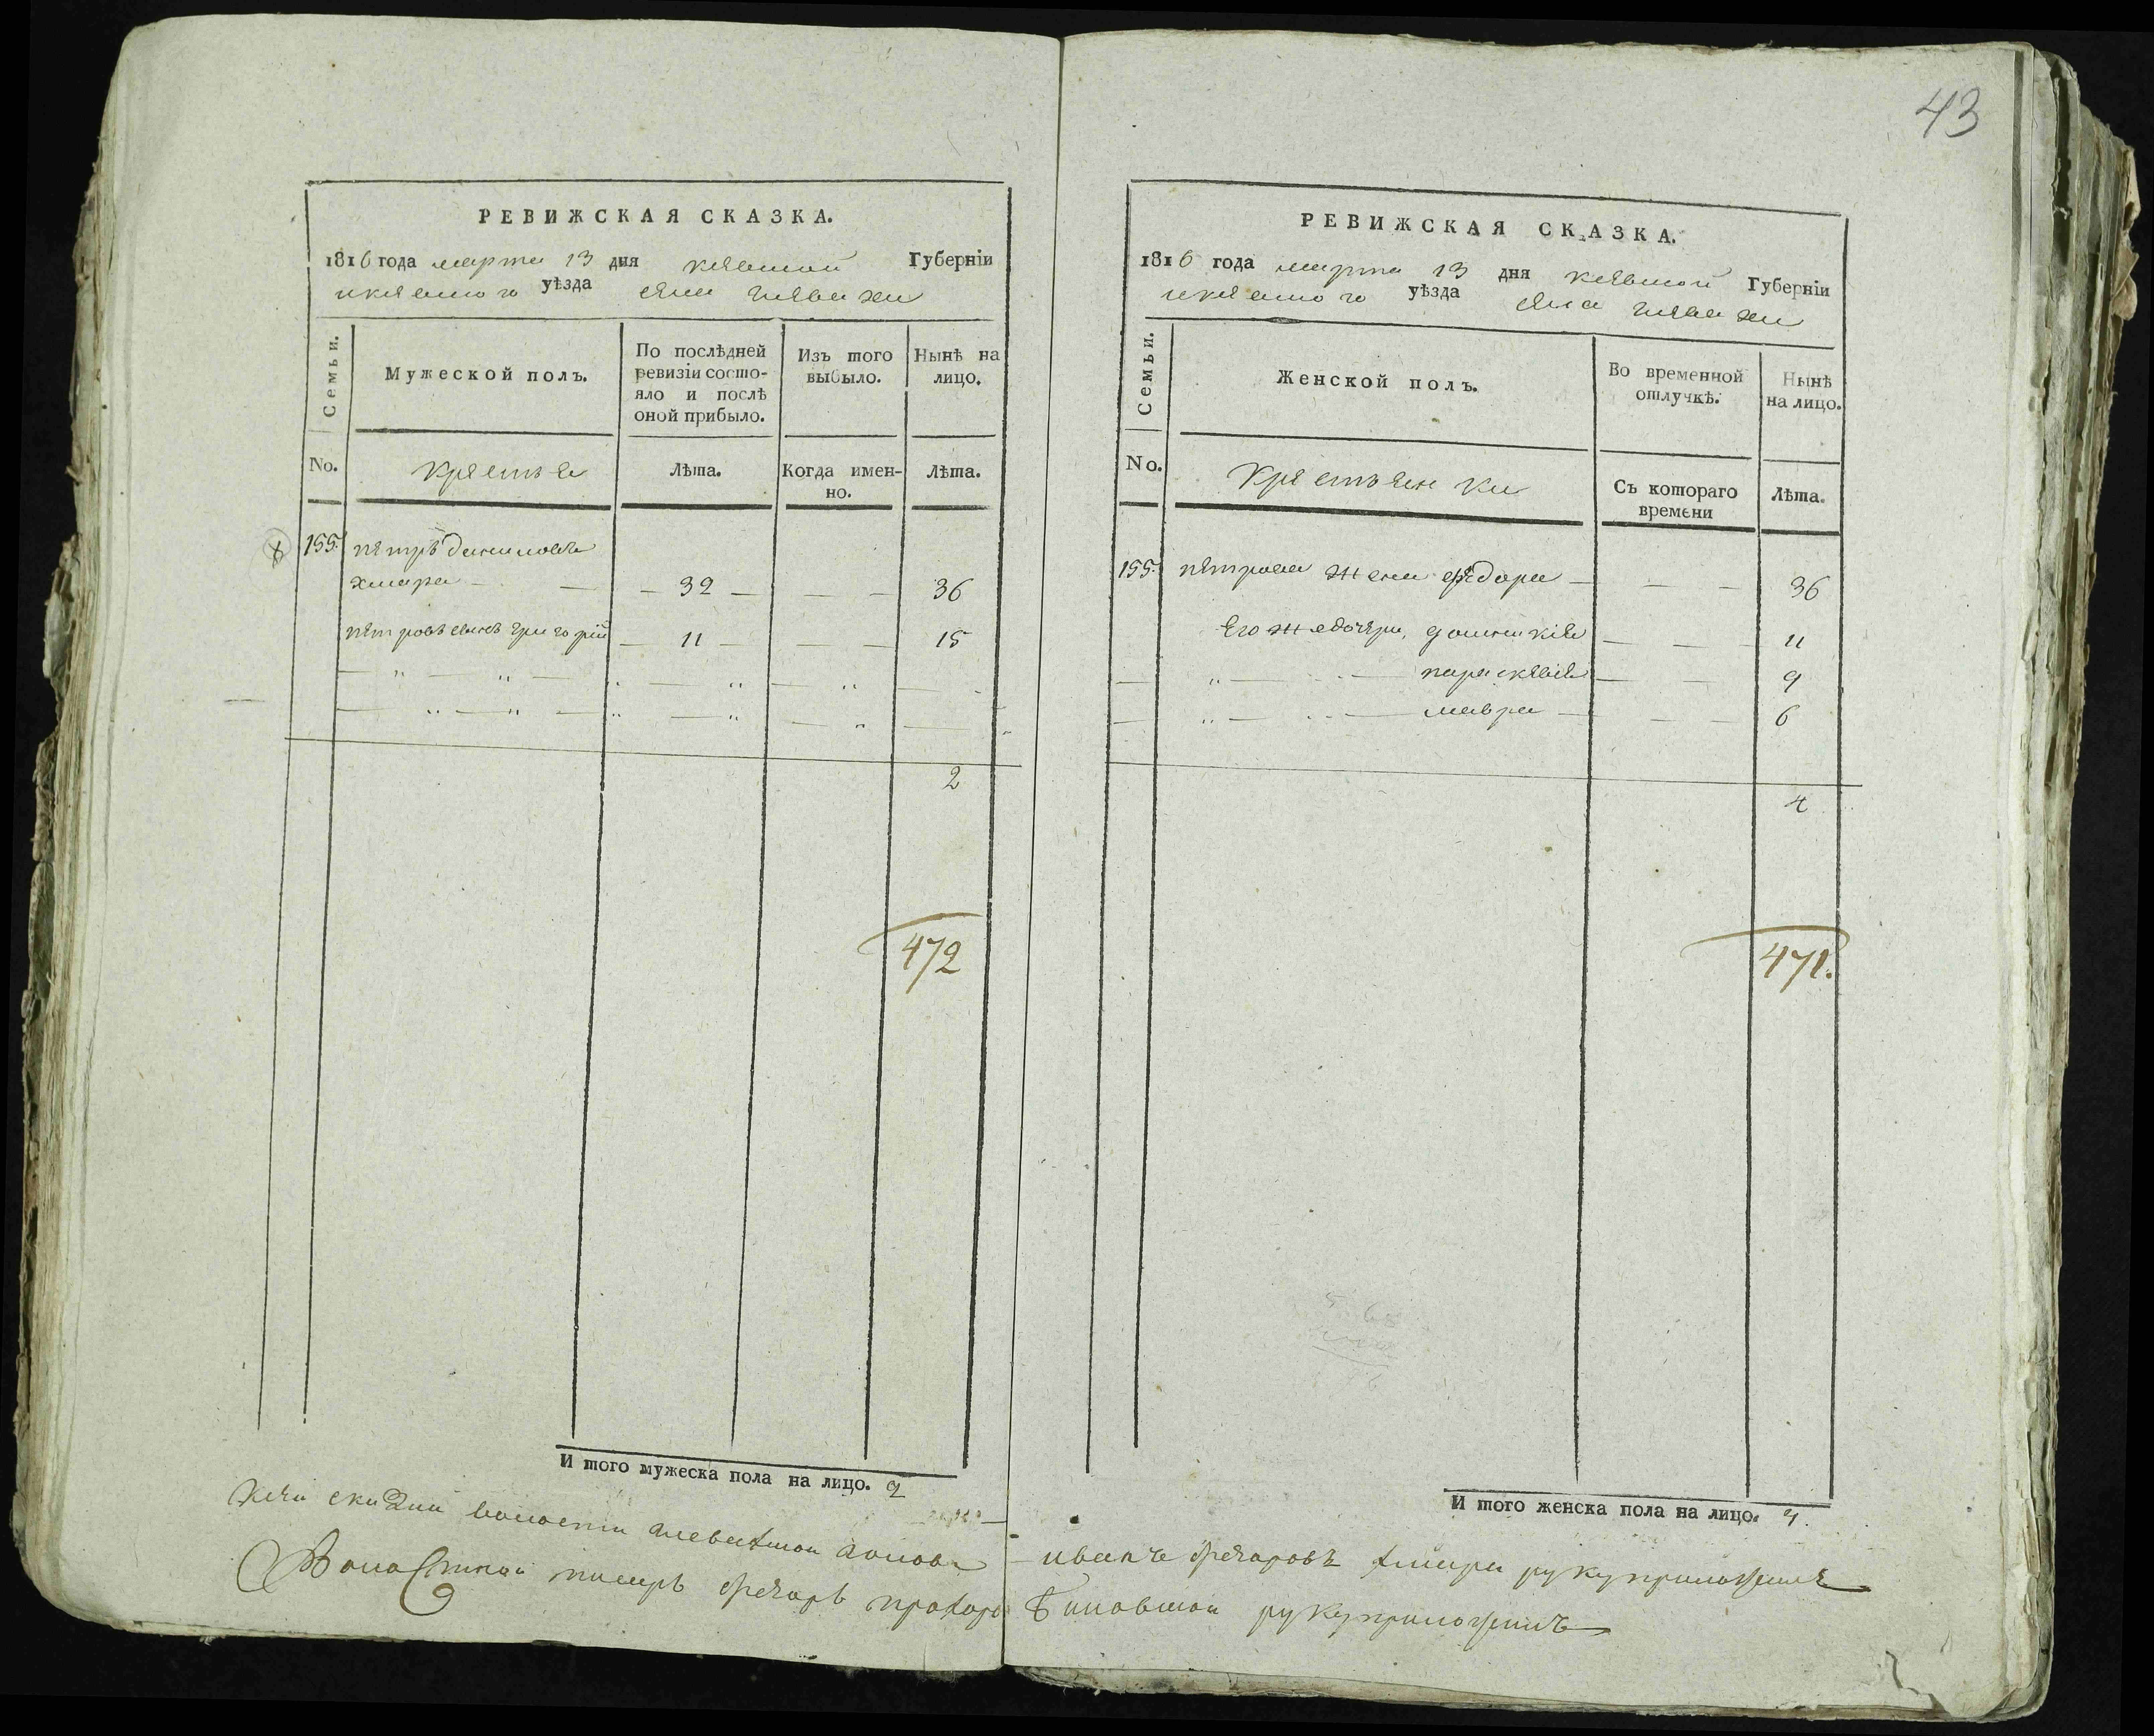 43
РЕВИЖСКАЯ СКАЗКА.
1816 года марта 13 дня киевской Губерніи
киевского уѣзда села глевахи
Семьи.
Мужеской полъ.
По послѣдней ревизіи состояло и послѣ оной прибыло.
Изъ того выбыло.
Нынѣ на лицо.
No.
Лѣта.
Когда именно.
Лѣта.
155. петръ даниловъ
хмара — — — 32 — — — 36
петровъ сынъ григорій — 11 — — — 15
2
472
И того мужеска пола на лицо. 2
РЕВИЖСКАЯ СКАЗКА.
1816 года марта 13 дня киевской Губерніи
киевского уѣзда села глевахи
Семьи.
Женской полъ.
Во временной отлучкѣ.
Нынѣ на лицо.
No.
крестьянки
Съ котораго времени
Лѣта.
155. петрова жена федора — — — 36
Его же дочери, домникія — — — 11
параскевія — — — 9
мавра — — — 6
4
471.
И того женска пола на лицо. 4.
иванъ федоровъ руку приложилъ
писаръ федоръ руку приложилъ